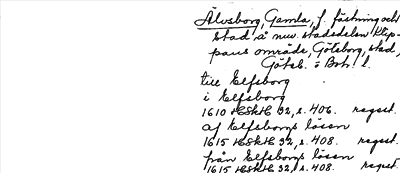 Älvsborg, Gamla, f. fästning och
stad å nuv. stadsdelen Klip-
pans område, Göteborg, stad,
Göteb. o Boh. l.
till Elfsborg
i Elfsborg
1610 HSkH 32, s. 406. regest.
af Elfsborgs lösen
1615 HSkH 32, s. 408. regest.
från Elfsborgs lösen
1615 HSkH 32, s. 408. regest.